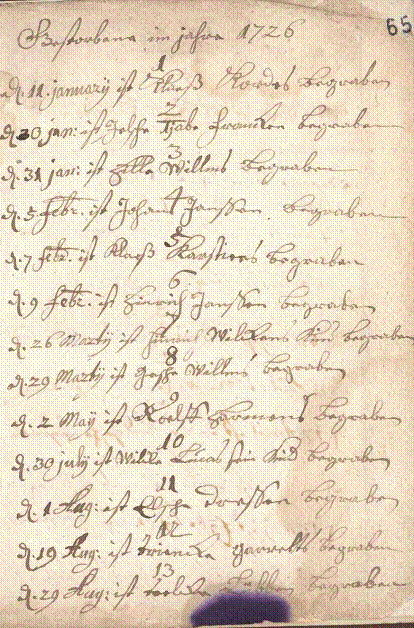 65
Gestorbene im jahre 1726
1
d. 11 januarÿ ist Klaeß Kordes begraben
2
d. 30 jan: ist Jelsche Tjabe Francken begraben
3
d. 31 jan: ist Willms begraben
4
d. 5 Febr. ist Johan Janssen begraben
5
d. 7 Febr. ist Klaeß Karstiens begraben
6
d. 9 Febr. ist Hinrich Janssen begraben
7
d. 26 Martÿ ist Hinrich Willkens Kind begraben
8
d. 29 Martÿ ist Gesche Willms begraben
9
d. 2 Maÿ ist Roelff Harmens begraben
10
d. 30 julÿ ist Lucas sein Kind begraben
11
d. 1 Aug: ist Elsche begraben
12
d. 19 Aug: ist Trinke Garrelts begraben
13
d. 29 Aug: ist begraben